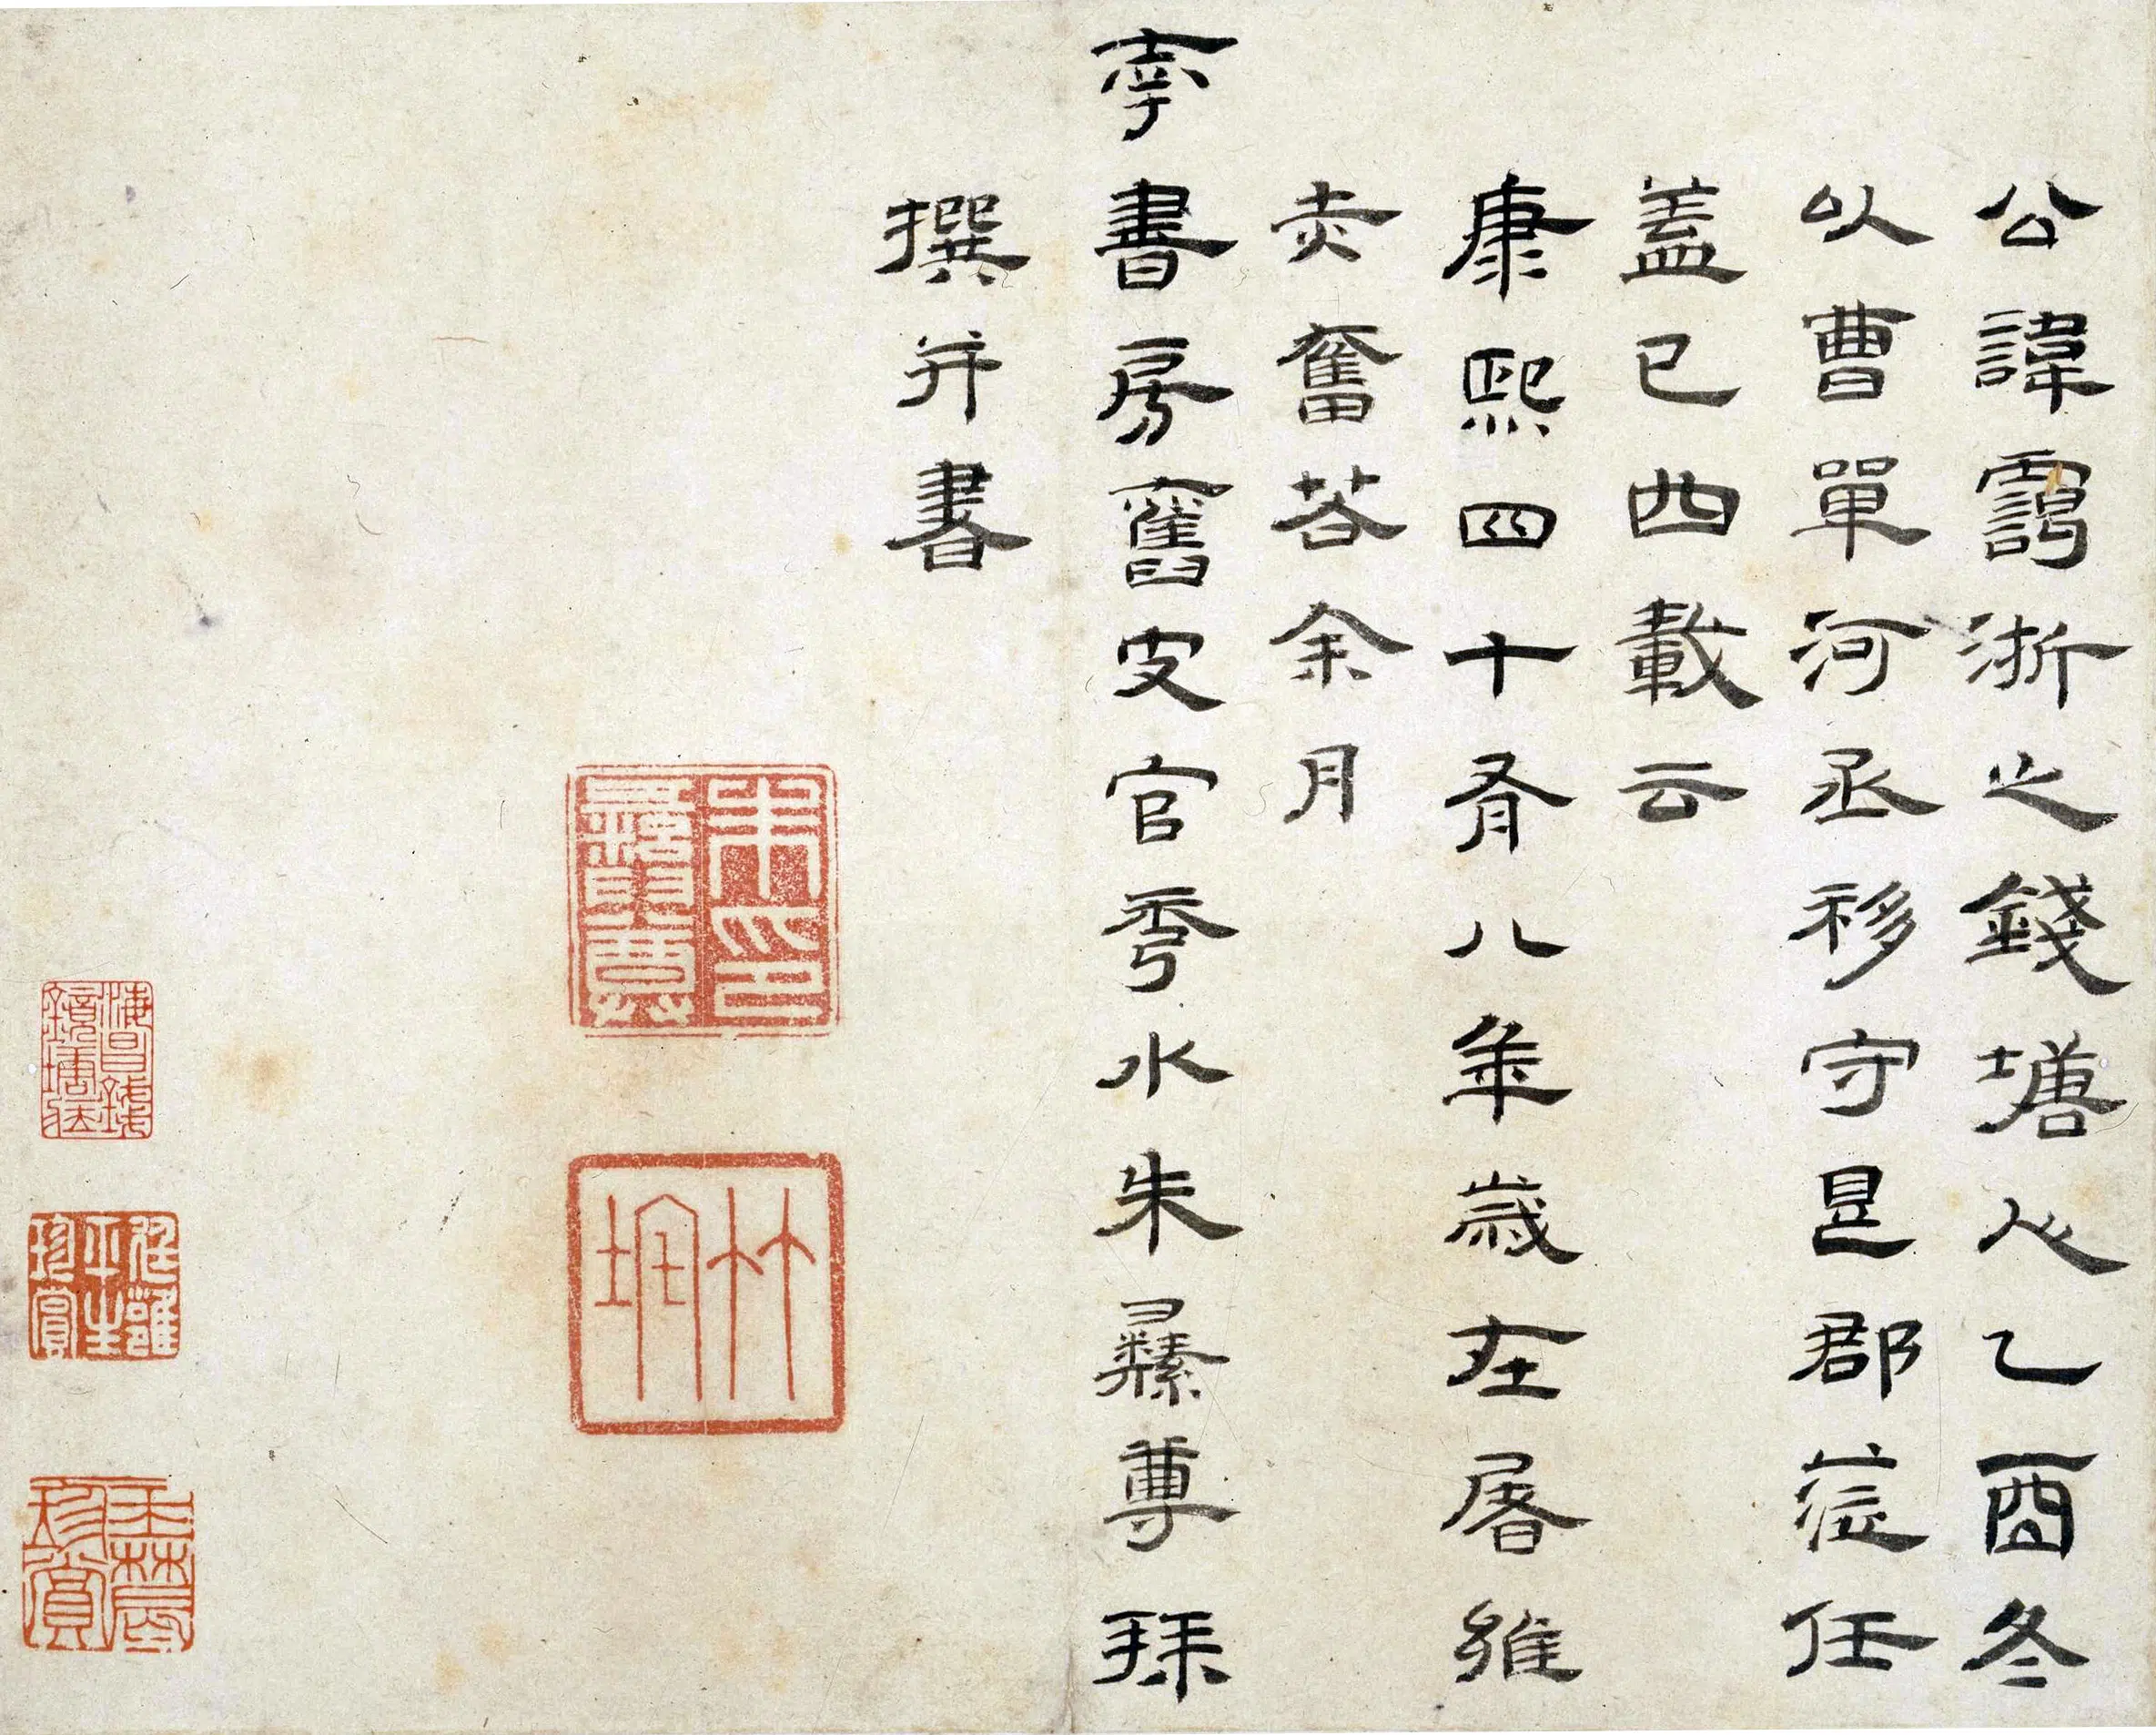 公諱浙之錢塘人乙酉冬
以曹單河丞移守是郡蒞任
蓋已四載云
康熙四十有八年歲在屠維
赤奮若余月
南書房舊史官秀水朱彝尊拜
撰并書
朱印彝尊
竹垞
海昌錢鏡塘藏
平生珍賞
珍賞